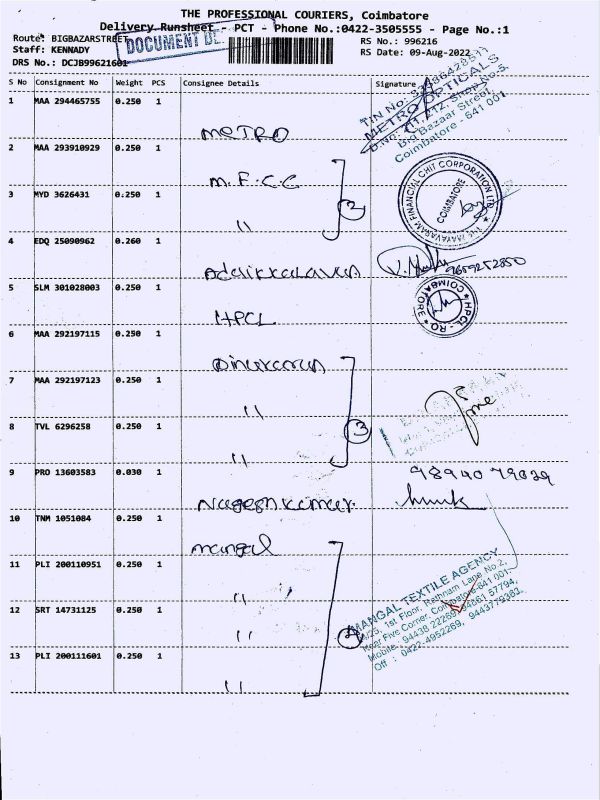 THE PROFESSIONAL COURIERS, Coimbatore
Delivery Runsheet - PCT - Phone No.:0422-3505555 - Page No.:1
Route: BIGBAZARSTREET
RS No.: 996216
Staff: KENNADY
RS Date: 09-Aug-2022
DRS No.: DCJB99621601
DOCUMENT DE
S No Consignment No Weight PCS Consignee Details Signature
1 MAA 294465755 0.250 1 METRO
METRO OPTICALS
Big Bazaar Street,
Coimbatore - 641 001
2 MAA 293910929 0.250 1 M.F.C.C
3 MYD 3626431 0.250 1 " 2
THE MAYAVARAM FINANCIAL CHIT CORPORATION LTD
COIMBATORE
4 EDQ 25090962 0.260 1 Adaikkalavan
9659252850
5 SLM 301028003 0.250 1 HPCL
HPCL - RO
COIMBATORE
6 MAA 292197115 0.250 1 Dinakaran
7 MAA 292197123 0.250 1 "
8 TVL 6296258 0.250 1 " 3
9 PRO 13603583 0.030 1 Nageshkumar
9894079029
10 TNM 1051084 0.250 1 Mangal
11 PLI 200110951 0.250 1 "
12 SRT 14731125 0.250 1 " 4
13 PLI 200111601 0.250 1 "
MANGAL TEXTILE AGENCY
1st Floor, Rathnam Lane No.2,
Near Five Corner, Coimbatore-641 001.
Off : 0422-4952269, 9443779383.